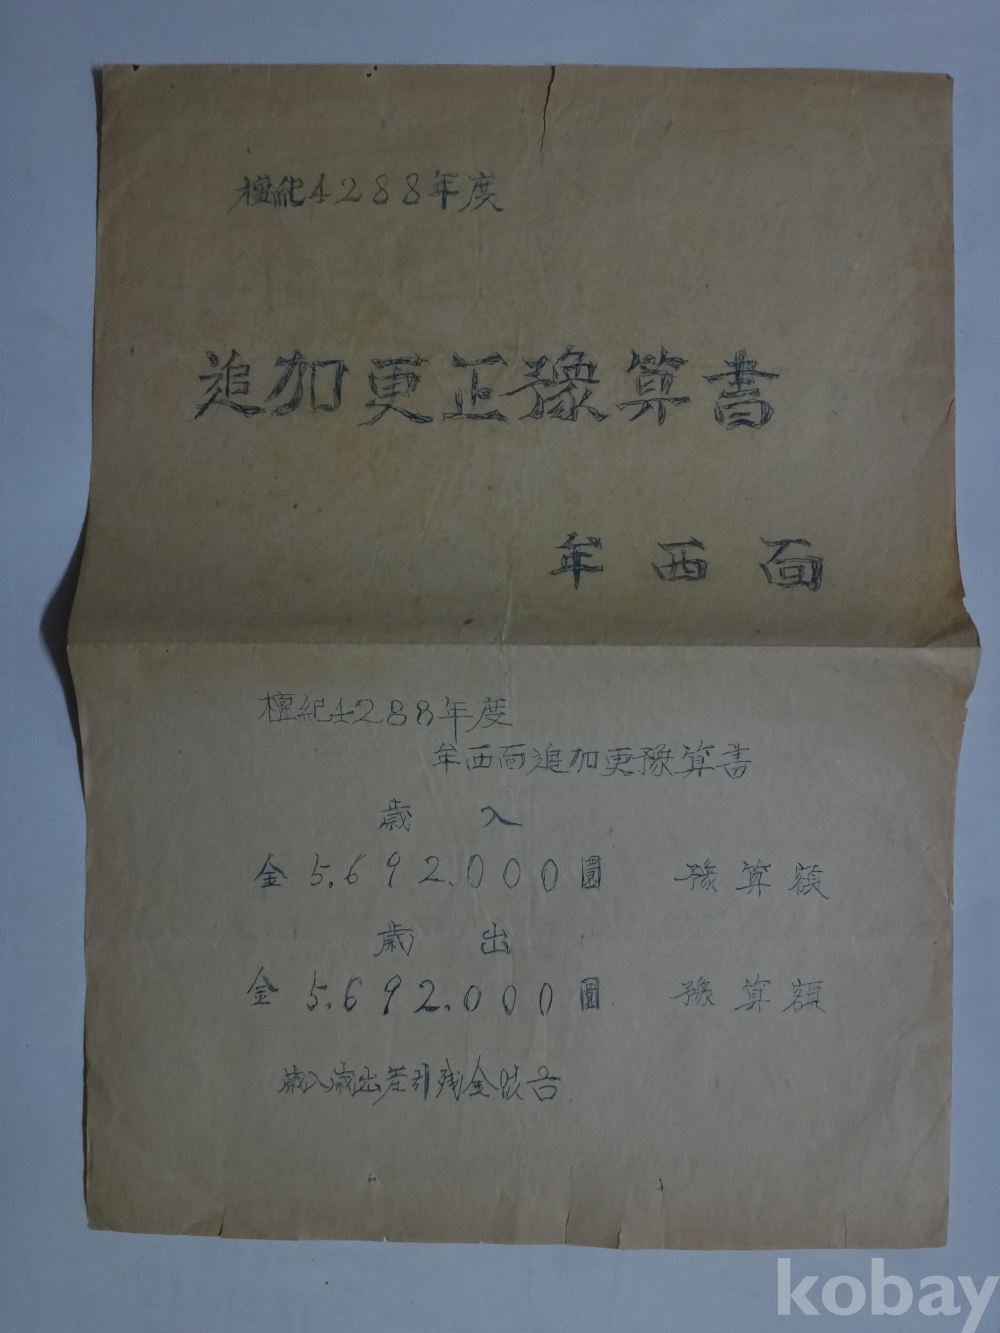 檀紀4288年度
追加更正豫算書
牟西面
檀紀4288年度
牟西面追加更豫算書
歲 入
金 5.692.000圓 豫算額
歲 出
金 5.692.000圓 豫算額
歲入歲出差引残金
kobay